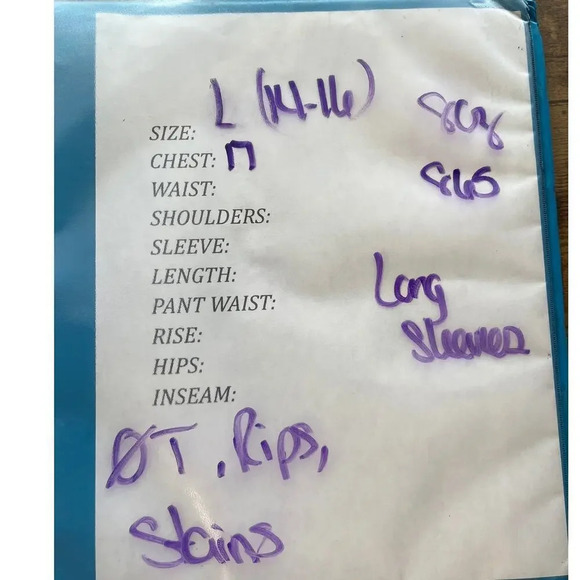 SIZE: L (14-16)
CHEST: 17
WAIST:
SHOULDERS:
SLEEVE:
LENGTH:
PANT WAIST:
RISE:
HIPS:
INSEAM:
Long
Sleeves
ØT, Rips,
Stains